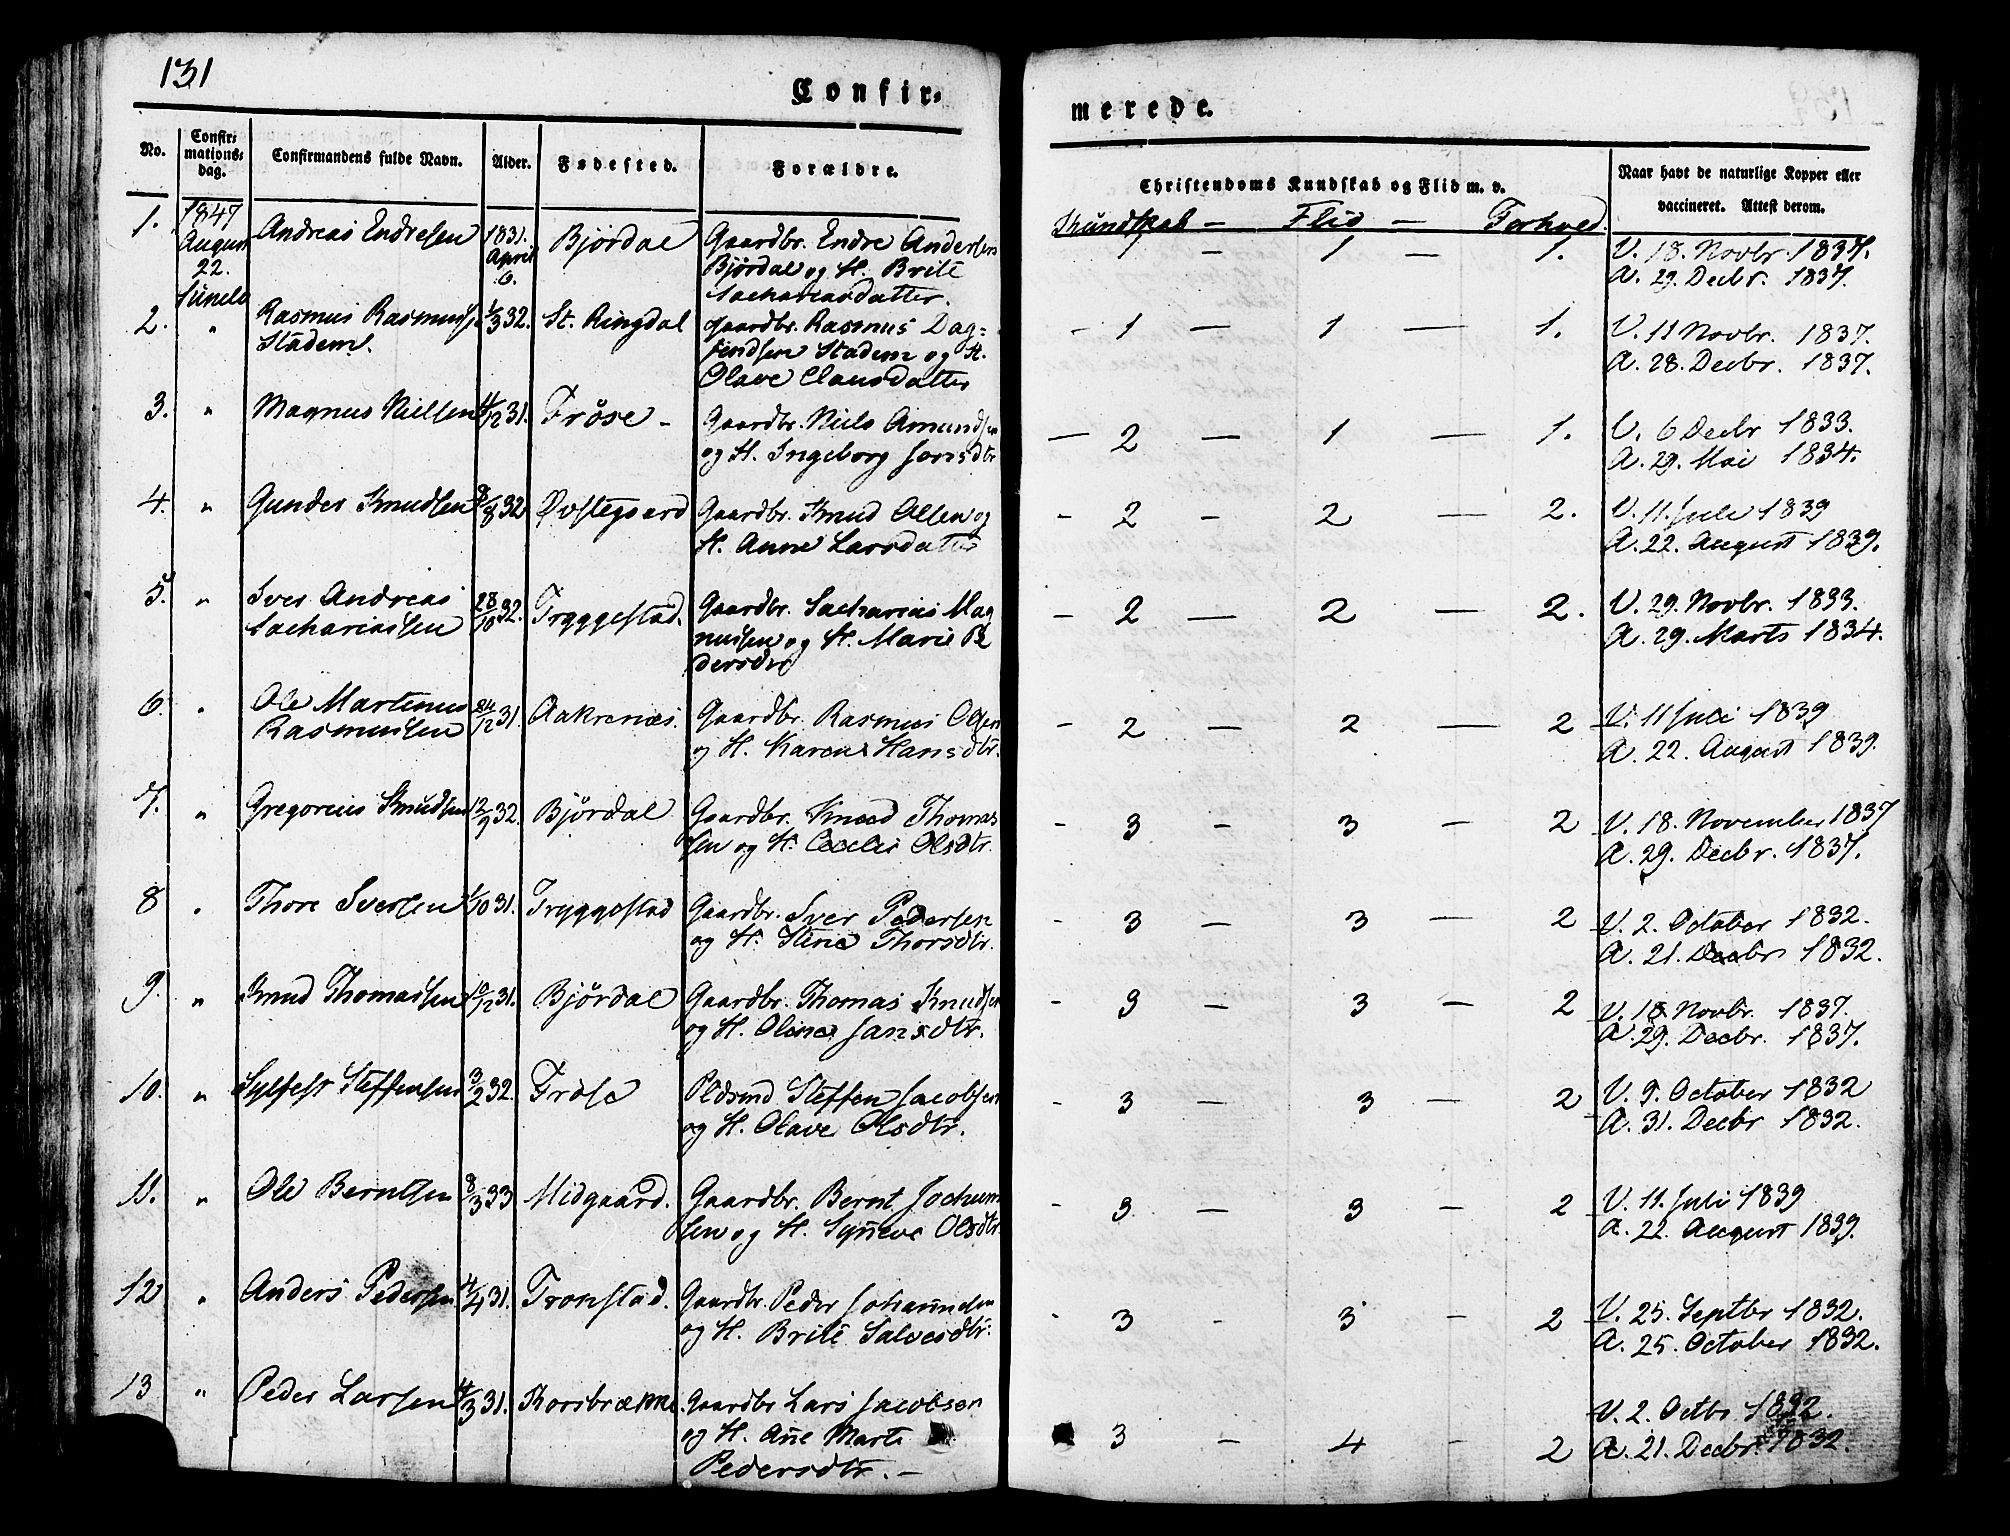 131
Confir-
merede.
No.
Confir-
mations-
dag.
Confirmandens fulde Navn.
Alder.
Fødested.
Forældre.
Christendoms Kundskab og Flid m. v.
Naar havt de naturlige Kopper eller
vaccineret. Attest derom.
Kundskab — Flid — Forhold.
1. 1847 August 22. Andreas Endresen 1831. April 6. Bjørdal Gaardbr. Endre Andersen
Bjørdal og H. Brite
Sachariasdatter.
1 — 1 — 1. V. 18. Novbr. 1837.
A. 29. Decbr. 1837.
2. " Rasmus Rasmussen
Stadem. 1/3 32. St. Ringdal Gaardbr. Rasmus Dag-
findsen Stadem og H.
Olave Clausdatter
- 1 — 1 — 1. V. 11 Novbr. 1837.
A. 28. Decbr. 1837.
3. " Magnus Nielsen 31. Frøse - Gaardbr. Niels Amundsen
og H. Ingeborg Jonsdtr
— 2 — 1 — 1. V. 6 Decbr 1833.
A. 29. Mai 1834.
4. " Gunder Knudsen 32 Øvstegaard Gaardbr. Knud Olsen og
H. Anne Larsdatter
- 2 - 2 — 2. V. 11. Juli 1839
A. 22. August 1839.
5. " Iver Andreas
Sachariassen 28/10 32. Tryggestad. Gaardbr. Sacharias Mag
nussen og H. Marie Pe
dersdtr
- 2 — 2 — 2. V. 29. Novbr. 1833.
A. 29. Marts 1834.
6. " Ole Martinus
Rasmussen 24/12 31. Aakrenæs. Gaardbr. Rasmus Olsen
og H. Karen Hansdtr.
- 2 — 2 — 2 V. 11 Juli 1839
A. 22. August 1839.
7. " Gregorius Knudsen 12/9 32. Bjørdal Gaardbr. Knud Thomas
sen og H. Cecelie Olsdtr.
- 3 - 3 — 2 V. 18. November 1837
A. 29. Decbr. 1837.
8 " Thore Iversen 1/10 31. Tryggestad Gaardbr. Iver Pedersen
og H. Stine Thorsdtr.
- 3 — 3 — 2 V. 2. October 1832.
A. 21. Decbr 1832.
9. " Knud Thomassen 10/12 31. Bjørdal Gaardbr. Thomas Knudsen
og H. Oline Jansdtr.
- 3 — 3 — 2 V. 18. Novbr. 1837.
A. 29. Decbr. 1837.
10. " Sylfest Steffensen 3/2 32. Frøse Pldsmd Steffen Jacobsen
og H. Olave Olsdtr.
- 3 — 3 — 2 V. 9. October 1832
A. 31. Decbr 1832.
11. " Ole Berntsen 8/3 33 Midgaard. Gaardbr. Bernt Jochum
sen og H. Synneve Olsdtr
- 3 — 3 - 2 V. 11. Juli 1839
A. 22. August 1839.
12 " Anders Pedersen 31. Tronstad. Gaardbr. Peder Johannesen
og H. Brite Salvesdtr.
- 3 - 3 - 2 V. 25. Septbr 1832.
A. 25. October 1832.
13 " Peder Larsen 31. Korsbrække. Gaardbr Lars Jacobsen
og H. Ane Marte
Pedersdtr. —
3 - 4 - 2 V. 2. Octbr 1832.
A. 21. Decbr. 1832.